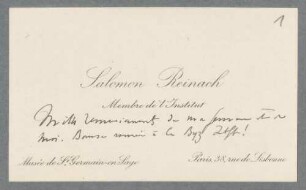 1
Salomon Reinach
Membre de l'Institut
Mille remerciements de ma femme et de
moi. à la Byz.
Musée de St Germain-en-Laye
Paris, 38, rue de Lisbonne